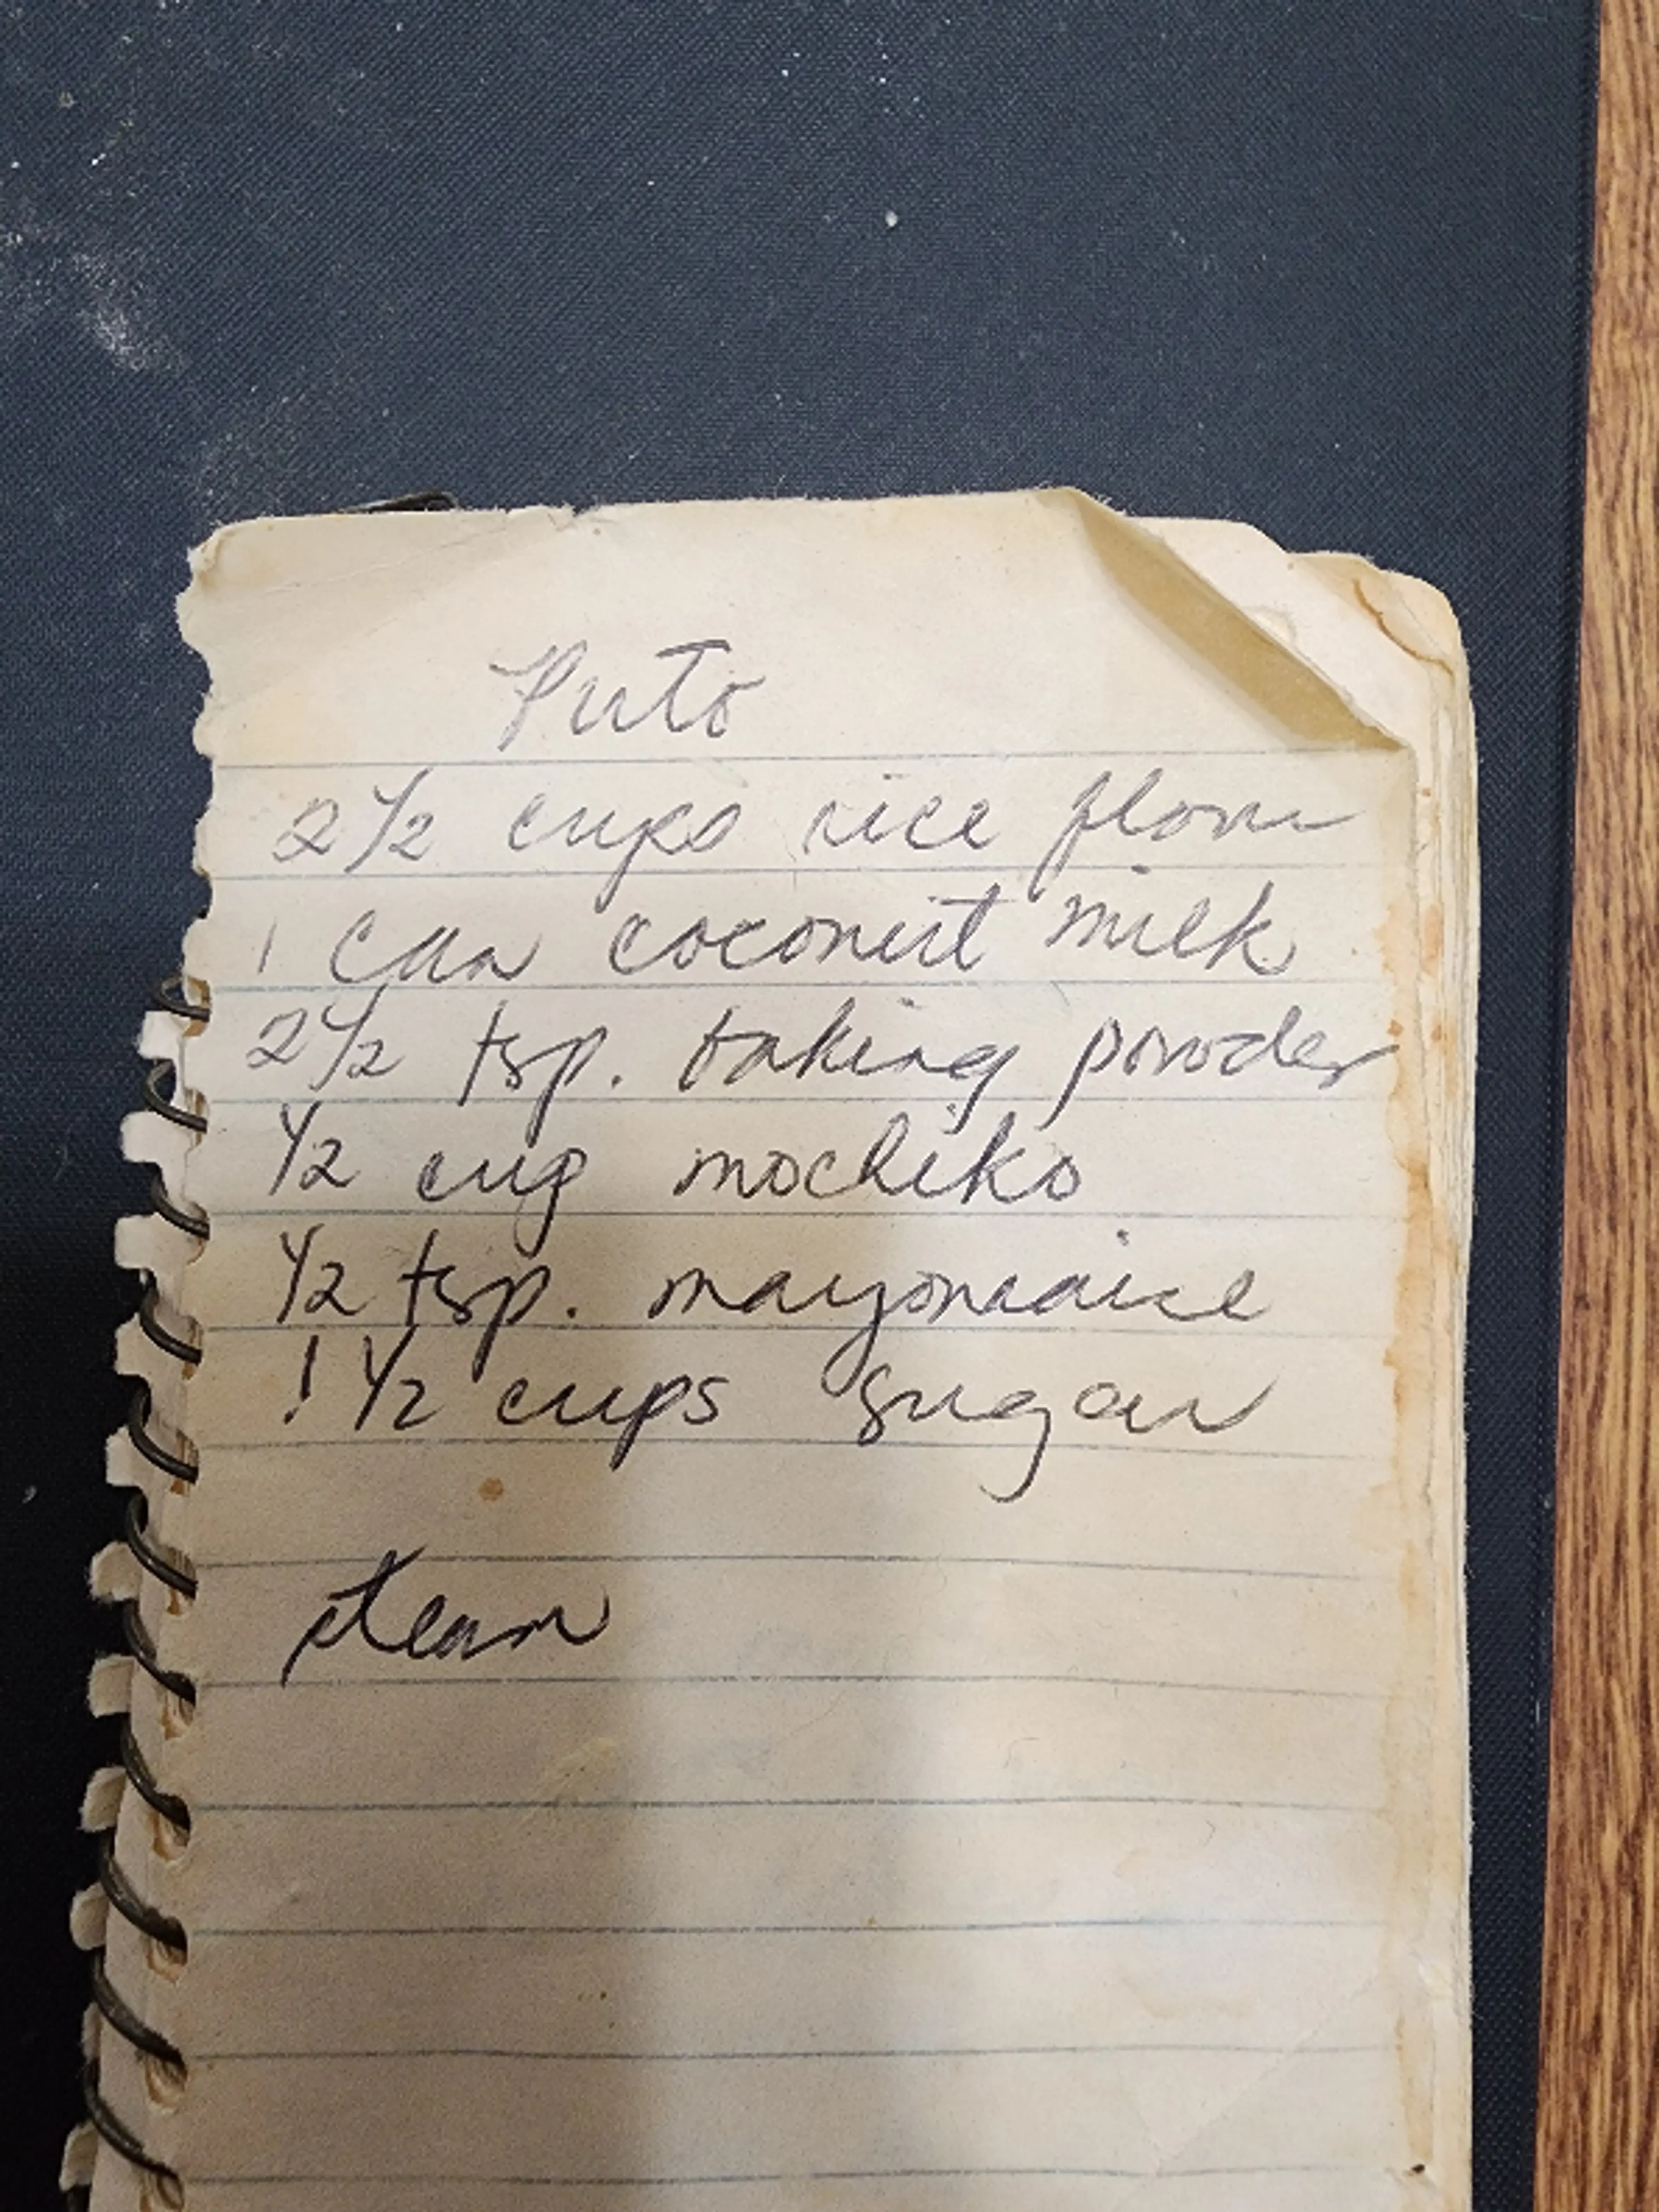 Puto
2 1/2 cups rice flour
1 can coconut milk
2 1/2 tsp. baking powder
1/2 cup mochiko
1/2 tsp. mayonnaise
1 1/2 cups sugar
steam